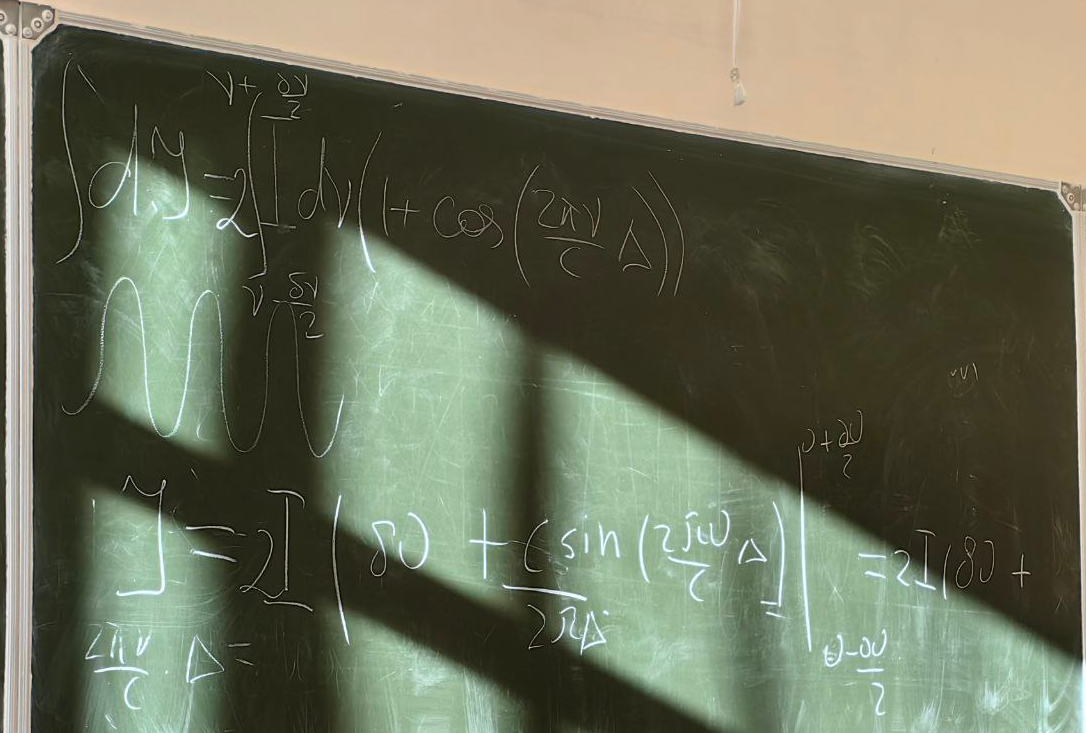 ∫ dJ = 2 ∫_{ν - δν/2}^{ν + δν/2} I dν (1 + cos(2πν/c Δ))
J = 2I (δν + c sin(2πν/c Δ)/2πΔ) |_{ν - δν/2}^{ν + δν/2} = 2I (δν +
2πν/c · Δ =